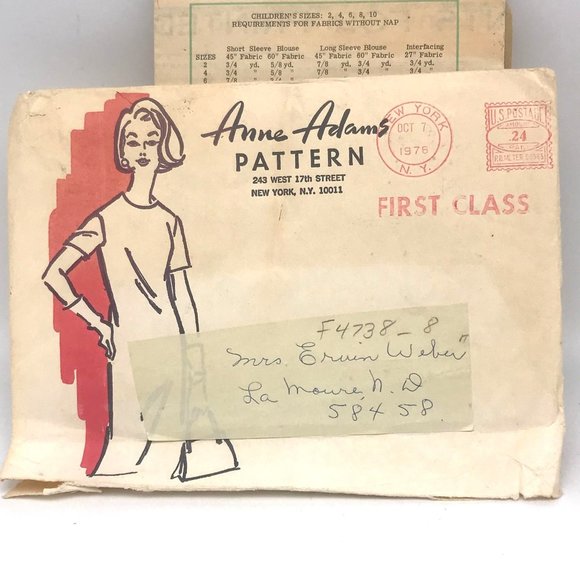 CHILDREN'S SIZES: 2, 4, 6, 8, 10
REQUIREMENTS FOR FABRICS WITHOUT NAP
Short Sleeve Blouse Long Sleeve Blouse Interfacing
SIZES 45" Fabric 60" Fabric 45" Fabric 60" Fabric 27" Fabric
2 3/4 yd. 5/8 yd. 7/8 yd. 3/4 yd. 3/4 yd.
4 3/4 " 5/8 " 7/8 " 3/4 " 3/4 "
6 7/8 " 3/4
Anne Adams
PATTERN
243 WEST 17th STREET
NEW YORK, N.Y. 10011
NEW YORK
OCT 7
1976
N.Y.
U.S. POSTAGE
.24
FIRST CLASS
F4738-8
Mrs. Erwin Weber
La Moure, N. D
58458